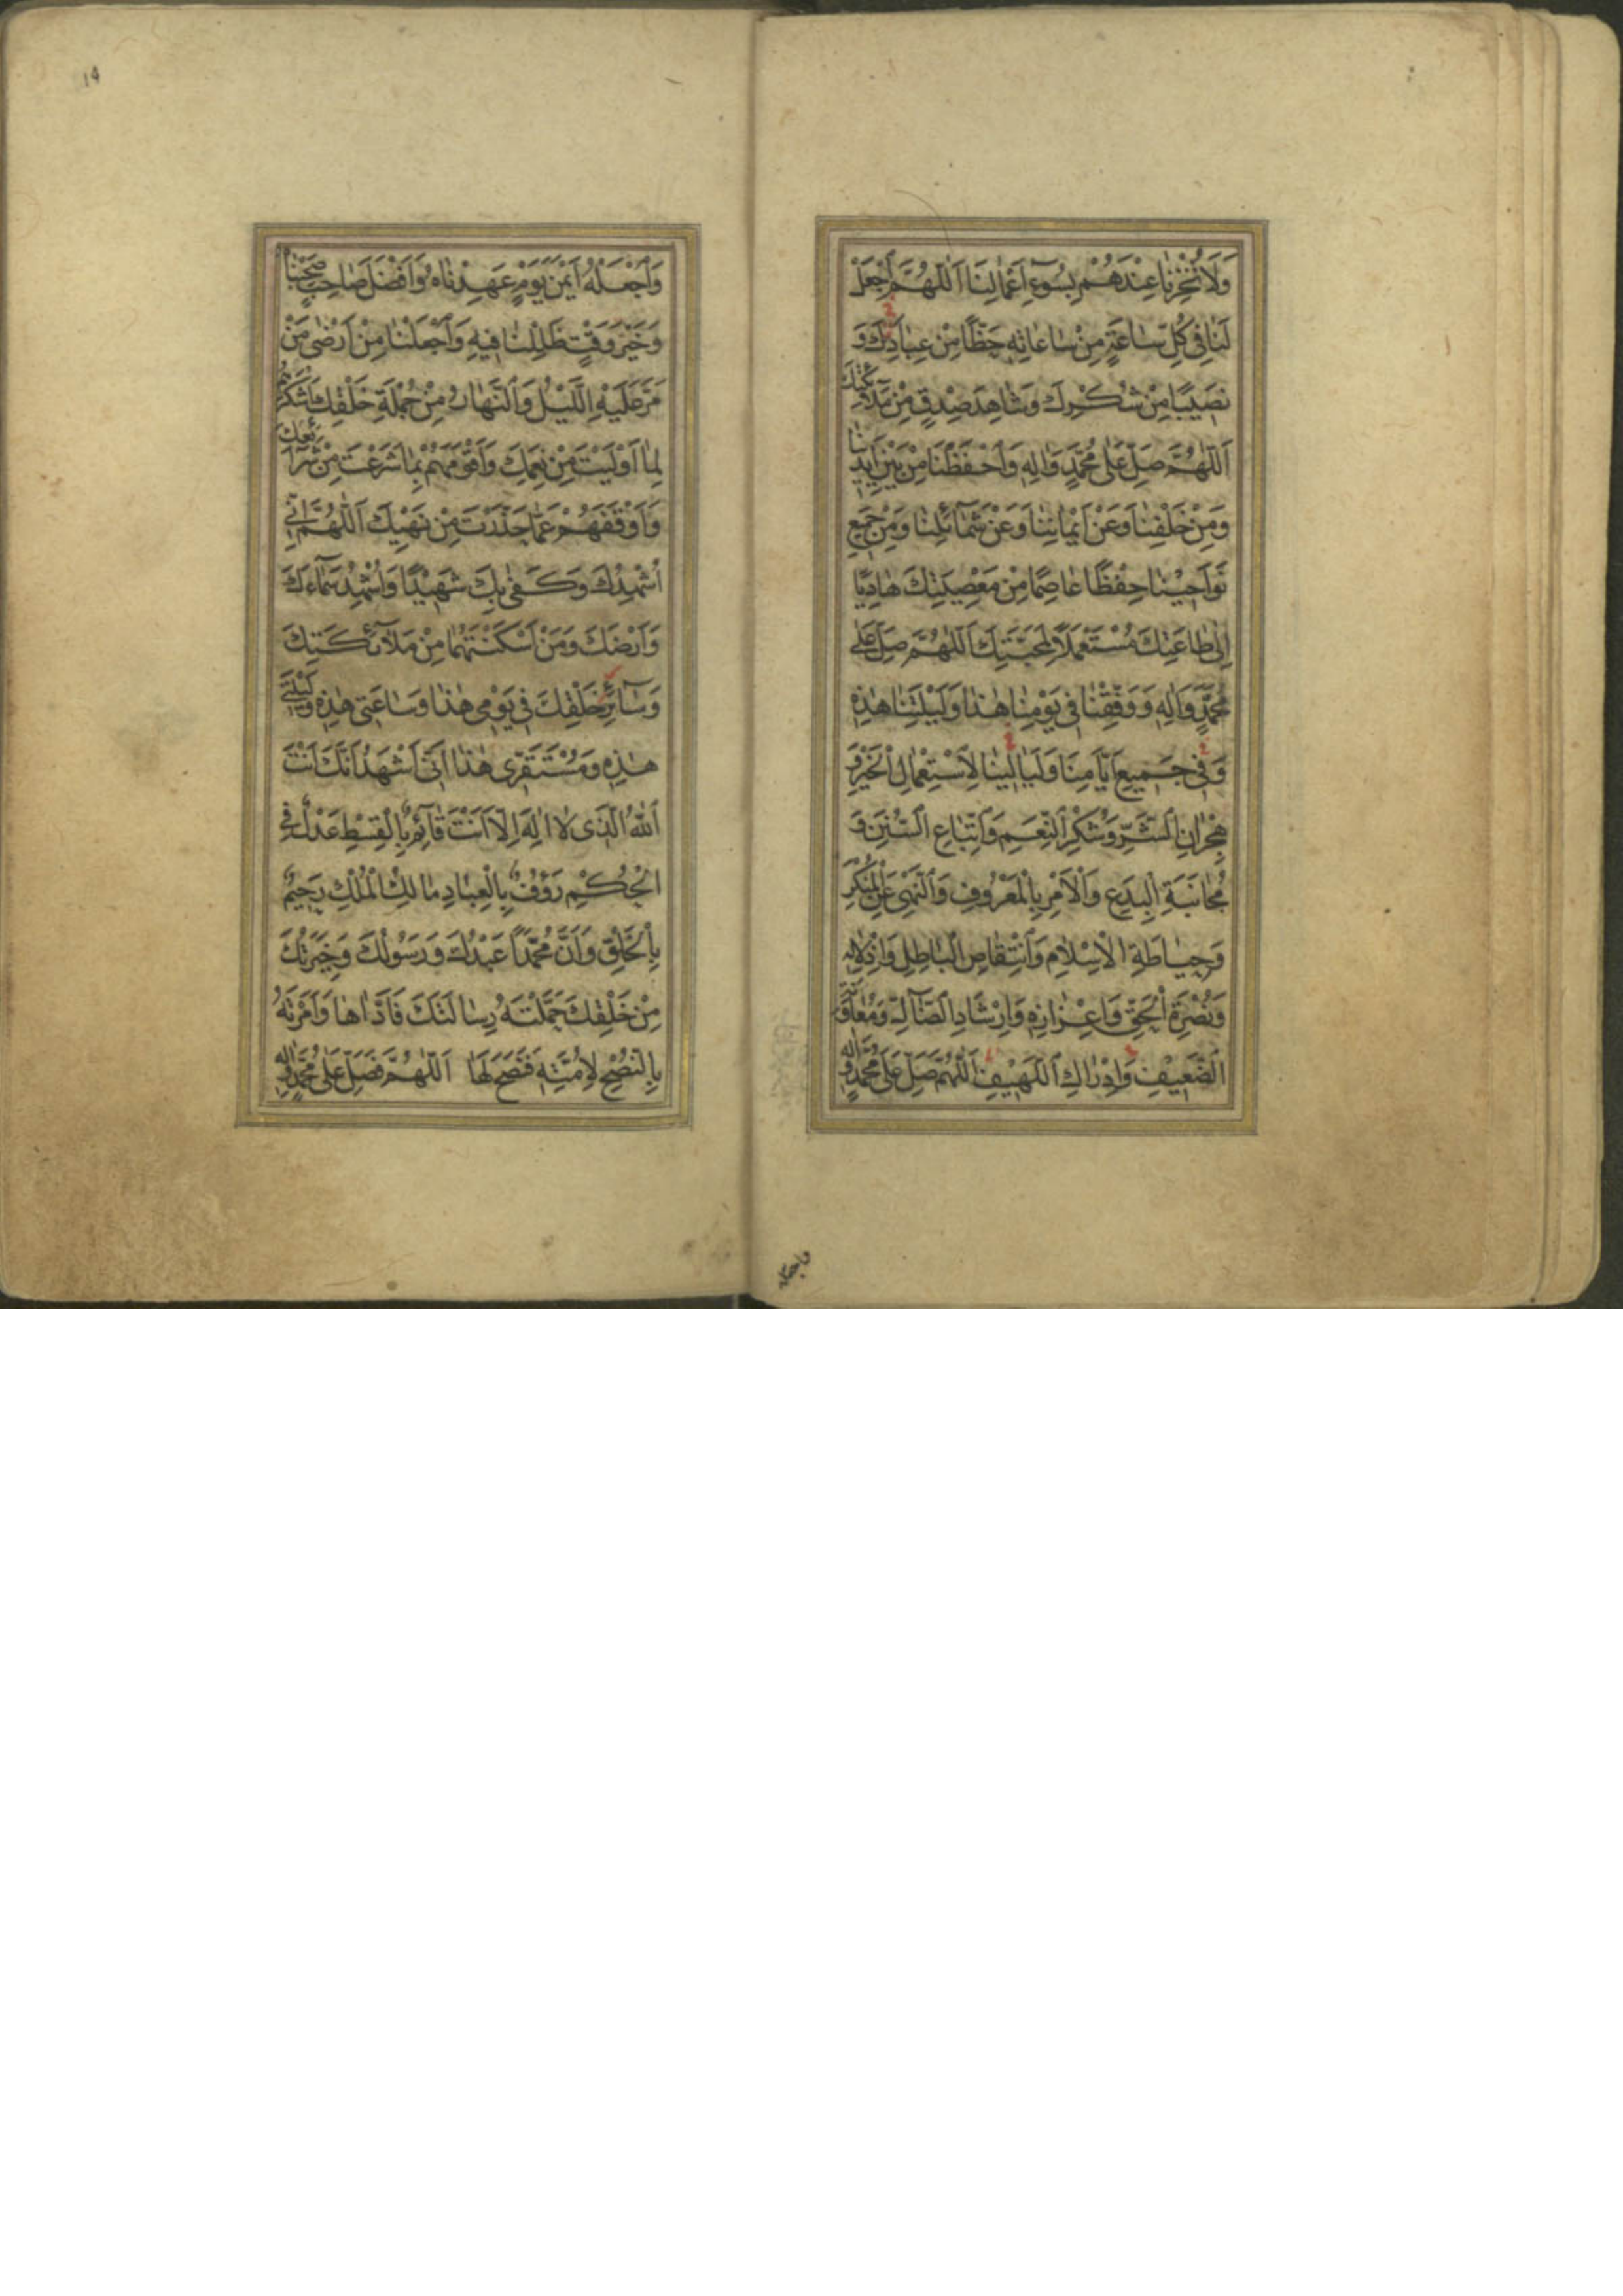 وَلَا تُخْزِنَا عِنْدَهُمْ بِسُوءِ اَعْمَالِنَا اَللّٰهُمَّ اجْعَلْ
لَنَا فِي كُلِّ سَاعَةٍ مِنْ سَاعَاتِهِ حَظًّا مِنْ عِبَادِكَ وَ
نَصِيبًا مِنْ شُكْرِكَ وَشَاهِدَ صِدْقٍ مِنْ مَلَآئِكَتِكَ
اَللّٰهُمَّ صَلِّ عَلٰى مُحَمَّدٍ وَاٰلِهِ وَاحْفَظْنَا مِنْ بَيْنِ اَيْدِينَا
وَمِنْ خَلْفِنَا وَعَنْ اَيْمَانِنَا وَعَنْ شَمَآئِلِنَا وَمِنْ جَمِيعِ
نَوَاحِينَا حِفْظًا عَاصِمًا مِنْ مَعْصِيَتِكَ هَادِيًا
اِلٰى طَاعَتِكَ مُسْتَعْمَلًا لِمَحَبَّتِكَ اَللّٰهُمَّ صَلِّ عَلٰى
مُحَمَّدٍ وَاٰلِهِ وَوَفِّقْنَا فِي يَوْمِنَا هٰذَا وَلَيْلَتِنَا هٰذِهِ
وَفِي جَمِيعِ اَيَّامِنَا وَلَيَالِينَا لِاسْتِعْمَالِ الْخَيْرِ وَ
هِجْرَانِ الشَّرِّ وَشُكْرِ النِّعَمِ وَاتِّبَاعِ السُّنَنِ وَ
مُجَانَبَةِ الْبِدَعِ وَالْاَمْرِ بِالْمَعْرُوفِ وَالنَّهْيِ عَنِ الْمُنْكَرِ
وَحِيَاطَةِ الْاِسْلَامِ وَانْتِقَاصِ الْبَاطِلِ وَاِذْلَالِهِ
وَنُصْرَةِ الْحَقِّ وَاِعْزَازِهِ وَاِرْشَادِ الضَّآلِّ وَمُعَاوَنَةِ
الضَّعِيفِ وَاِدْرَاكِ اللَّهِيفِ اَللّٰهُمَّ صَلِّ عَلٰى مُحَمَّدٍ وَاٰلِهِ
واجعله
١٩
وَاجْعَلْهُ اَيْمَنَ يَوْمٍ عَهِدْنَاهُ وَاَفْضَلَ صَاحِبٍ صَحِبْنَاهُ
وَخَيْرَ وَقْتٍ ظَلِلْنَا فِيهِ وَاجْعَلْنَا مِنْ اَرْضٰى مَنْ
مَرَّ عَلَيْهِ اللَّيْلُ وَالنَّهَارُ مِنْ جُمْلَةِ خَلْقِكَ اَشْكَرَهُمْ
لِمَا اَوْلَيْتَ مِنْ نِعَمِكَ وَاَقْوَمَهُمْ بِمَا شَرَعْتَ مِنْ شَرَآئِعِكَ
وَاَوْقَفَهُمْ عَمَّا حَذَّرْتَ مِنْ نَهْيِكَ اَللّٰهُمَّ اِنِّي
اُشْهِدُكَ وَكَفٰى بِكَ شَهِيدًا وَاُشْهِدُ سَمَآءَكَ
وَاَرْضَكَ وَمَنْ اَسْكَنْتَهُمَا مِنْ مَلَآئِكَتِكَ
وَسَآئِرِ خَلْقِكَ فِي يَوْمِي هٰذَا وَسَاعَتِي هٰذِهِ وَلَيْلَتِي
هٰذِهِ وَمُسْتَقَرِّي هٰذَا اَنِّي اَشْهَدُ اَنَّكَ اَنْتَ
اللّٰهُ الَّذِي لَا اِلٰهَ اِلَّا اَنْتَ قَآئِمٌ بِالْقِسْطِ عَدْلٌ فِي
الْحُكْمِ رَؤُفٌ بِالْعِبَادِ مَالِكُ الْمُلْكِ رَحِيمٌ
بِالْخَلْقِ وَاَنَّ مُحَمَّدًا عَبْدُكَ وَرَسُولُكَ وَخِيَرَتُكَ
مِنْ خَلْقِكَ حَمَّلْتَهُ رِسَالَتَكَ فَاَدَّاهَا وَاَمَرْتَهُ
بِالنُّصْحِ لِاُمَّتِهِ فَنَصَحَ لَهَا اَللّٰهُمَّ فَصَلِّ عَلٰى مُحَمَّدٍ وَاٰلِهِ